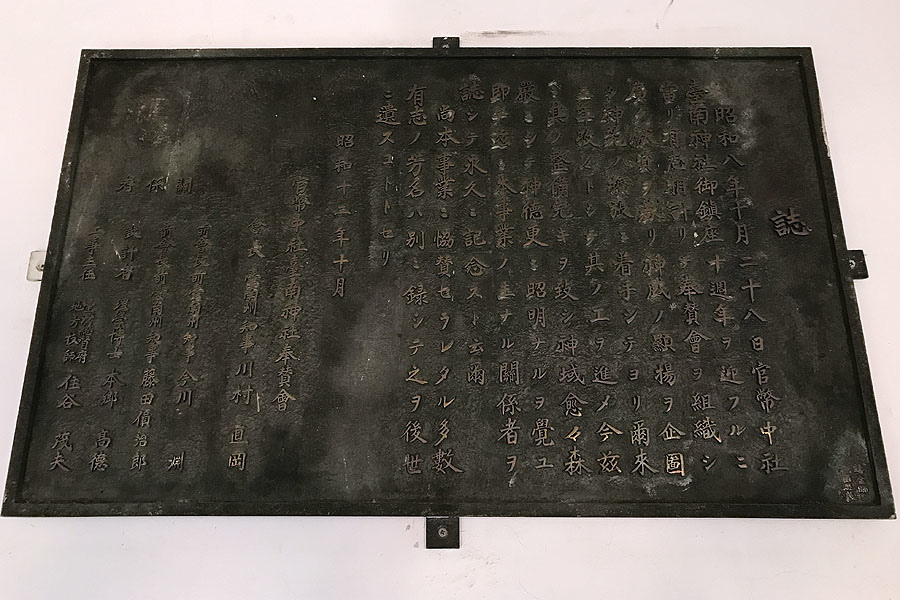 誌
昭和八年十月二十八日官幣中社
臺南神社御鎮座十週年ヲ迎フルニ
リ有志相計リテ奉賛會ヲ組織シ
ヲリ神威ノ顯揚ヲ企圖
シ神苑ノ ニ着手シテヨリ爾來
其ノ工ヲ進メ今茲
ニ其ノ ヲ致シ神域愈々森
嚴ニシテ神徳更ニ昭明ナルヲ覺ユ
即チ茲ニ本事業ノ主ナル關係者ヲ
誌シテ永久ニ記念スト云爾
尚本事業ニ協賛セラレタル多數
有志ノ芳名ハ別ニ錄シテ之ヲ後世
ニ遺スコトトセリ
昭和十二年十月
官幣中社臺南神社奉賛會
會長 臺南州知事 川村 直岡
關係者
前會長 前臺南州知事 今川 淵
前會長 前臺南州知事 藤田 傊治郎
設計者 林學博士 本郷 高徳
工事主任 地方技師 住谷 茂夫